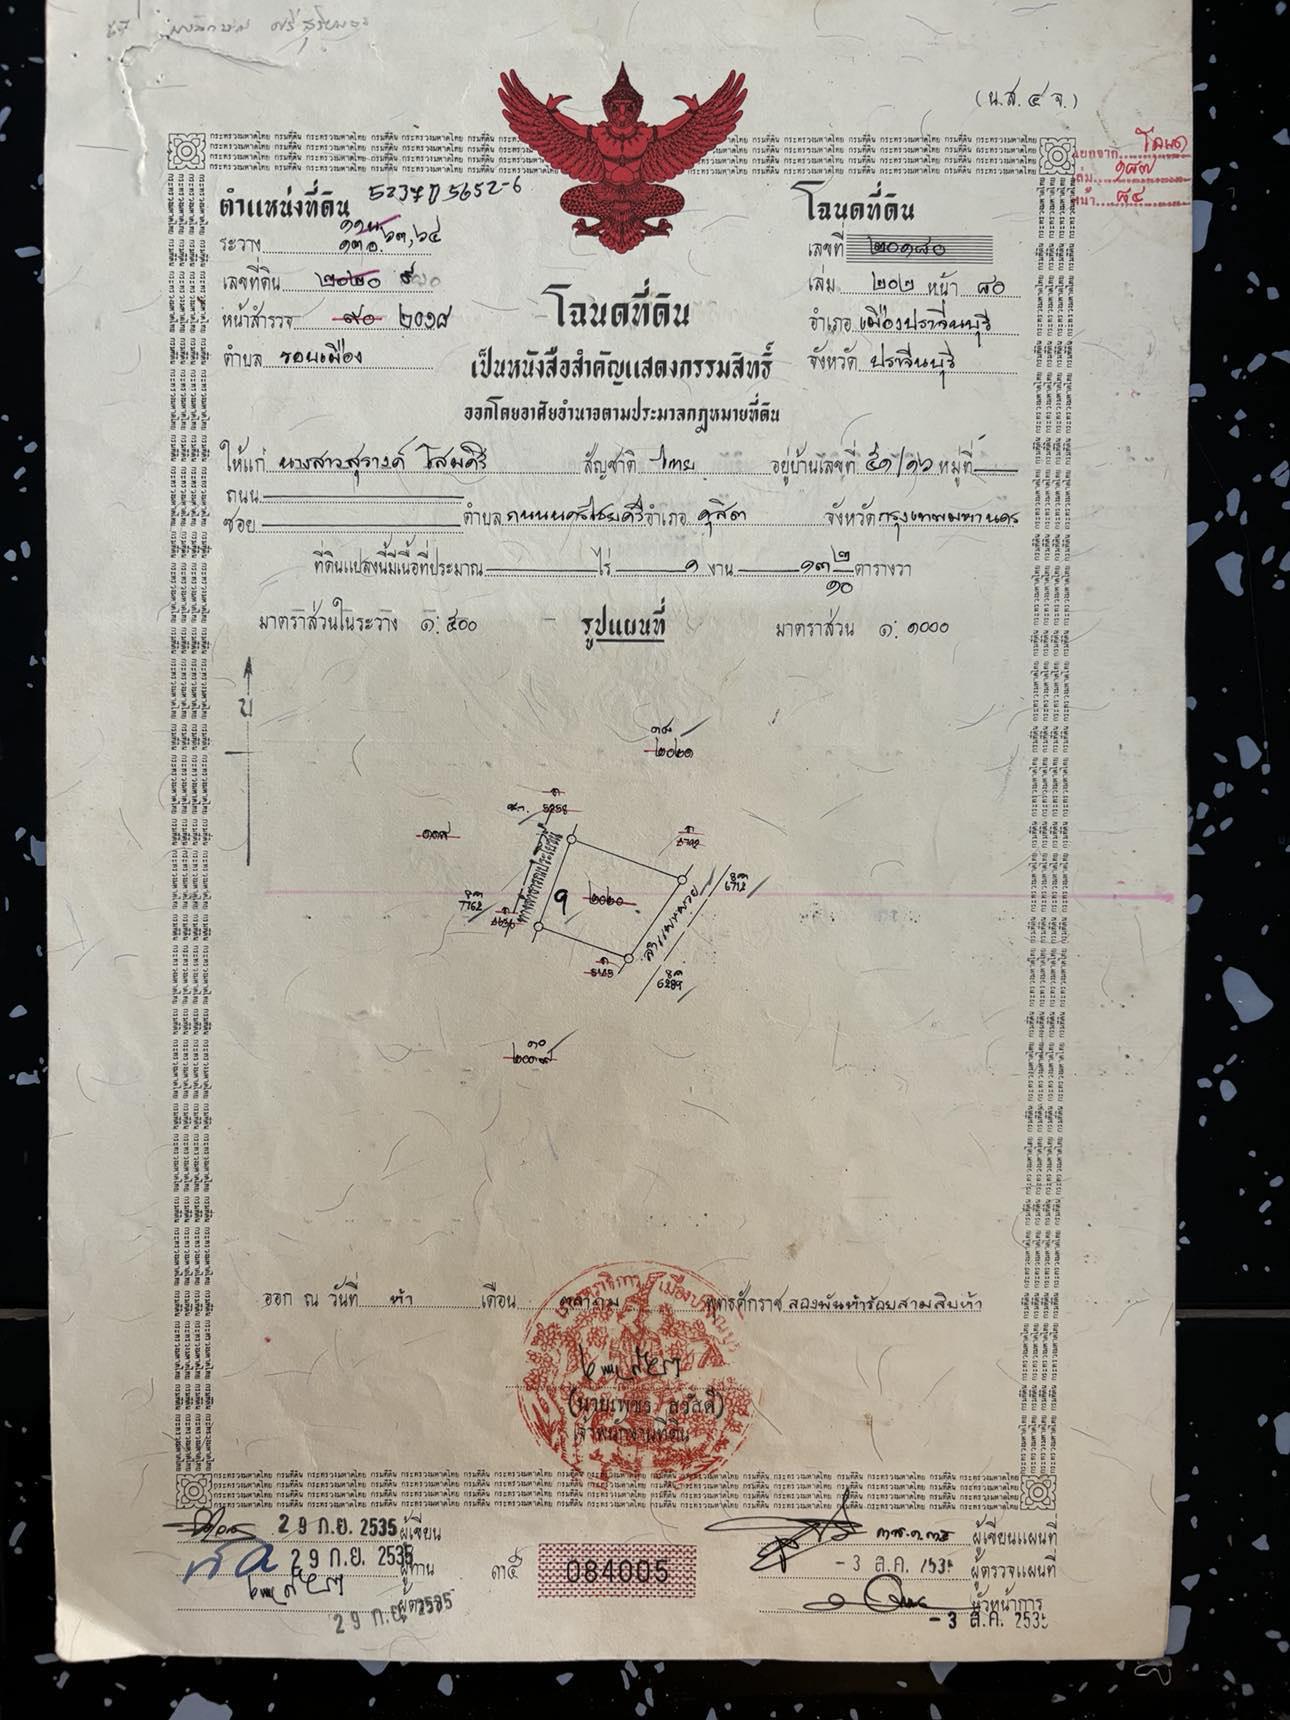 (น.ส. ๔ จ.)
โฉนด
แยกจาก
เล่ม ๑๘๗
หน้า ๘๔
ตำแหน่งที่ดิน 5237 II 5652-6
ระวาง ๑๓อ. ๖๓,๖๔
เลขที่ดิน ๒๐๒๐
หน้าสำรวจ ๙๐ ๒๐๑๘
ตำบล รอบเมือง
โฉนดที่ดิน
เลขที่ ๒๐๑๘๐
เล่ม ๒๐๒ หน้า ๘๐
อำเภอ เมืองปราจีนบุรี
จังหวัด ปราจีนบุรี
โฉนดที่ดิน
เป็นหนังสือสำคัญแสดงกรรมสิทธิ์
ออกโดยอาศัยอำนาจตามประมวลกฎหมายที่ดิน
ให้แก่ นางสาวสุรางค์ โสมศิริ สัญชาติ ไทย อยู่บ้านเลขที่ ๕๑/๑๖ หมู่ที่
ถนน
ซอย ตำบล ถนนนครไชยศรี อำเภอ ดุสิต จังหวัด กรุงเทพมหานคร
ที่ดินแปลงนี้มีเนื้อที่ประมาณ ไร่ ๑ งาน ๑๓ ๒/๑๐ ตารางวา
มาตราส่วนในระวาง ๑:๕๐๐ รูปแผนที่ มาตราส่วน ๑:๑๐๐๐
น
๒๐๒๑
ทางสาธารณประโยชน์
๑
๒๐๒๐
ออก ณ วันที่ ห้า เดือน ตุลาคม พุทธศักราช สองพันห้าร้อยสามสิบห้า
(นายเพชร สวัสดี)
เจ้าพนักงานที่ดิน
29 ก.ย. 2535 ผู้เขียน
29 ก.ย. 2535 ผู้ทาน
29 ก.ย. 2535 ผู้ตรวจ
๓๕ 084005
ผู้เขียนแผนที่
-3 ส.ค. 2535 ผู้ตรวจแผนที่
หัวหน้าการ
-3 ส.ค. 2535
กระทรวงมหาดไทย กรมที่ดิน